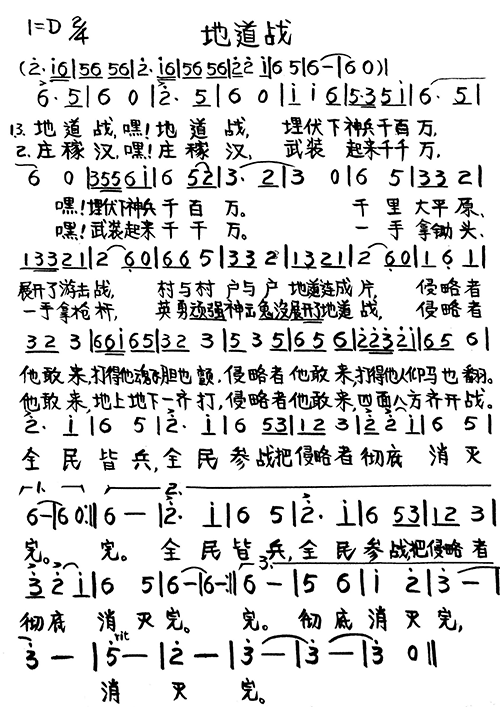 1=D 2/4 地道战
(2·i6|56 56|2·i6|56 56|2 2 i|6 5|6-|6 0)|
6·5|6 0|2·5|6 0|i i 6|5·35 i|6·5|
1 3. 地道战,嘿!地道战, 埋伏下神兵千百万,
2. 庄稼汉,嘿!庄稼汉, 武装起来千千万,
6 0|3556 i|6 52|3·2|3 0|6 5|33 2|
嘿!埋伏下神兵千百万。 千里大平原、
嘿!武装起来千千万。 一手拿锄头、
1332 1|2 60|66 5|33 2|132 1|2 60|1 6 1|
展开了游击战, 村与村户与户地道连成片, 侵略者
一手拿枪杆, 英勇顽强神出鬼没展开了地道战, 侵略者
32 3|66i 65|32 3|53 5|65 6|2232 i|65 6|
他敢来,打得他魂飞胆也颤,侵略者他敢来,打得他人仰马也翻。
他敢来,地上地下一齐打,侵略者他敢来,四面八方齐开战。
2·i|6 5|2·i|6 53|12 3|2 2 i|6 5|
全民皆兵,全民参战把侵略者彻底消灭
1. 2.
6-|6 0:||6-|2·i|6 5|2·i|6 53|12 3|
完。 完。 全民皆兵,全民参战,把侵略者
3.
3 2 i|6 5|6-|6-:||6-|5 6|i 2|3-|
彻底消灭完。 完。彻底消灭完,
rit
3-|5-|2-|3-|3-|3 0||
消灭完。